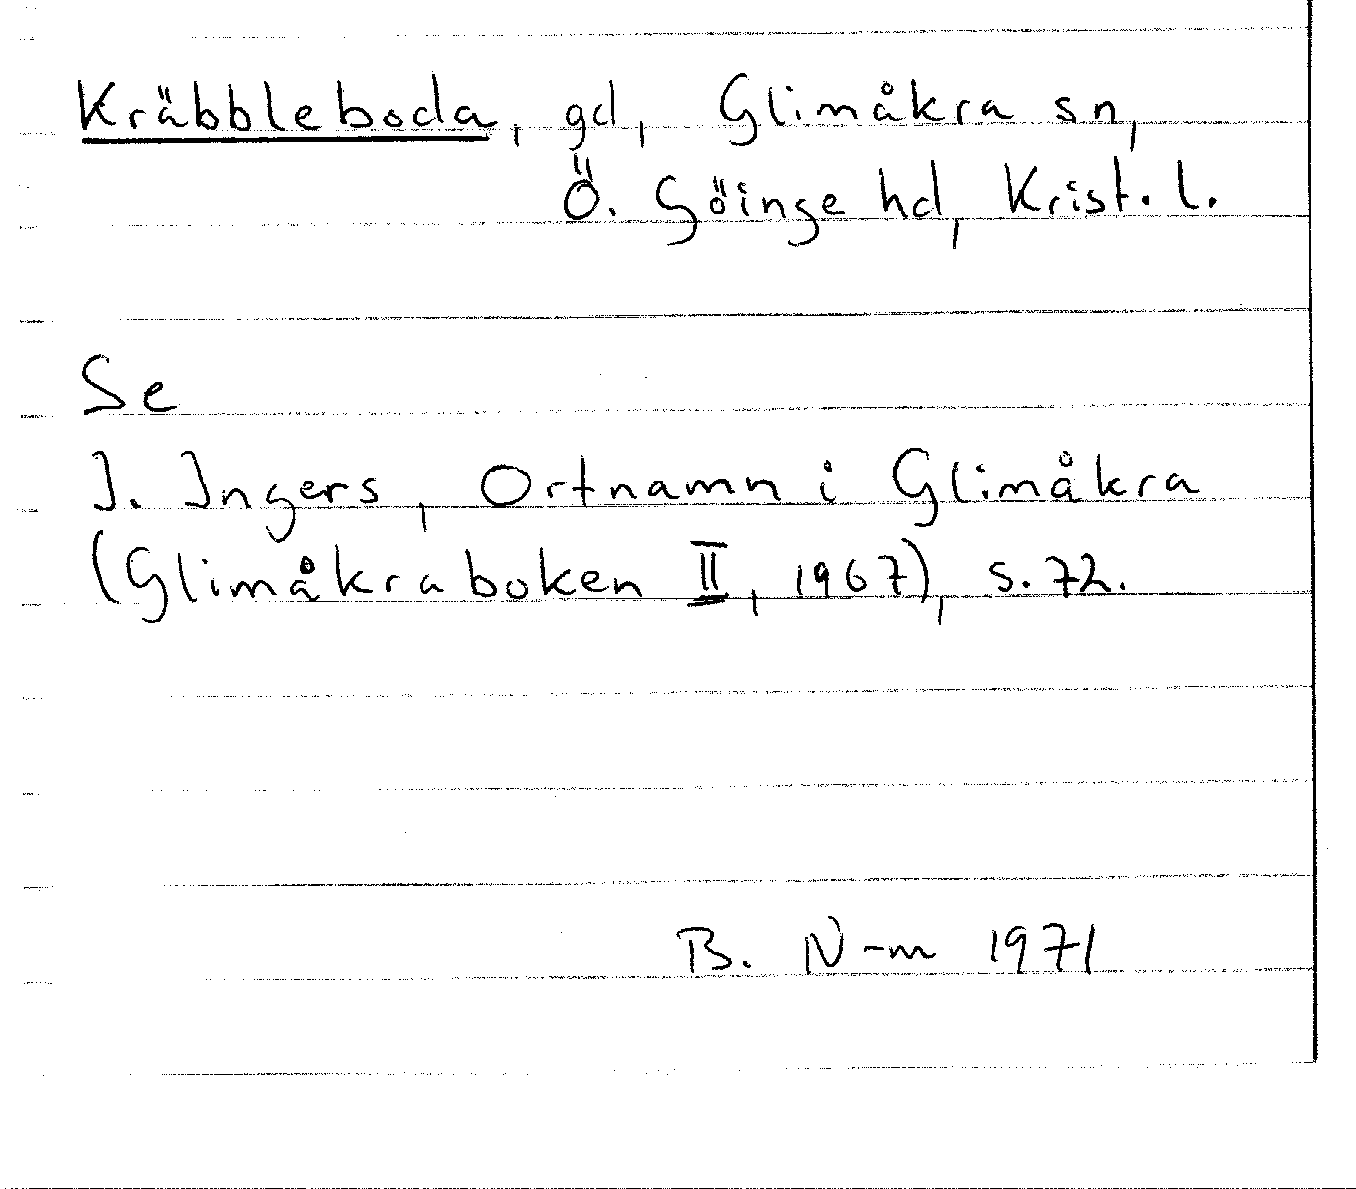 Kräbbleboda, gd, Glimåkra sn,
Ö. Göinge hd, Krist. l.
Se
I. Ingers, Ortnamn i Glimåkra
(Glimåkraboken II, 1967), s. 72.
B. N-m 1971